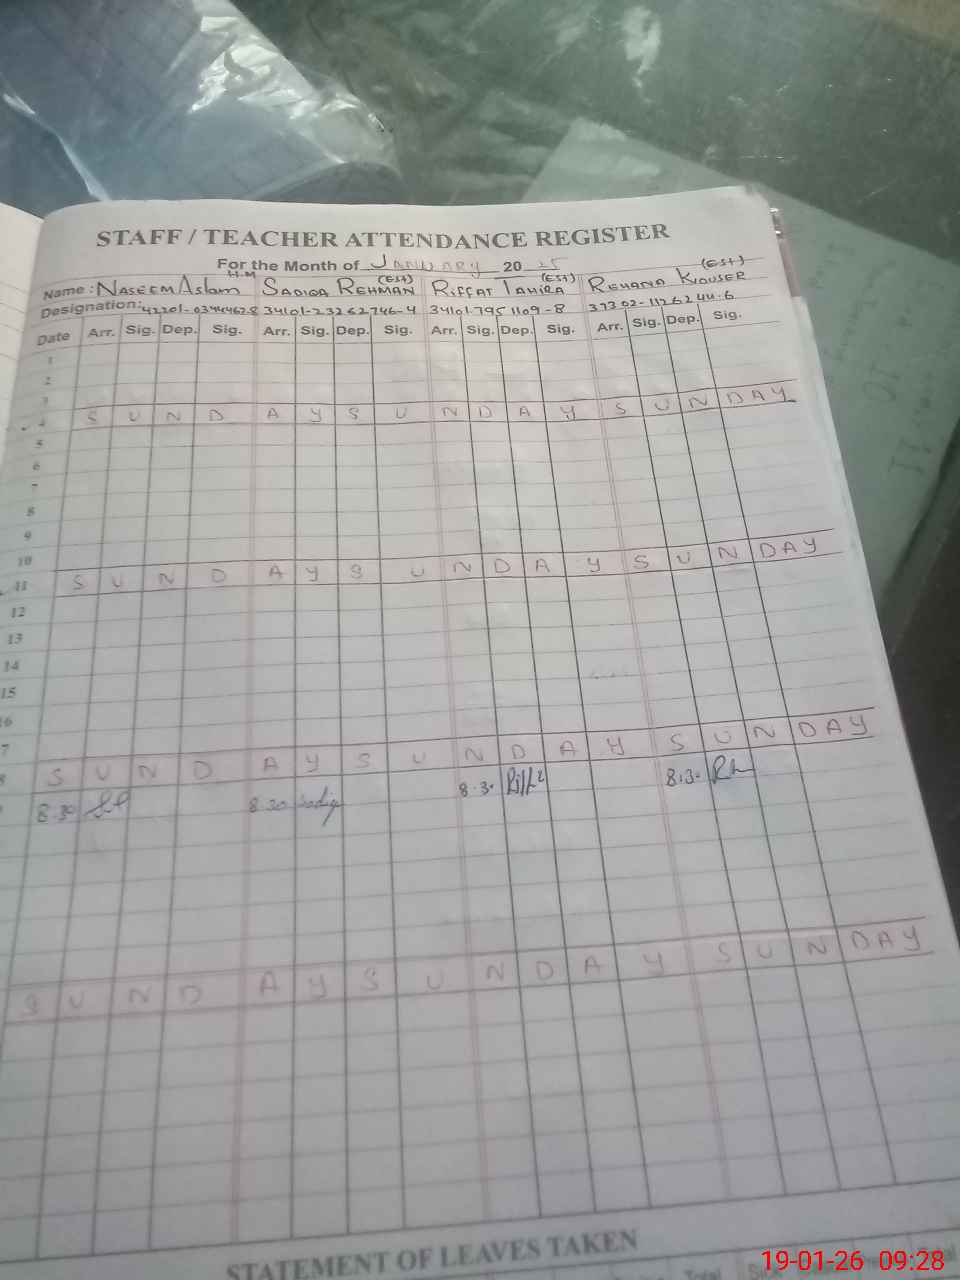 STAFF / TEACHER ATTENDANCE REGISTER
For the Month of JANUARY 20 25
H.M (EST) (EST) (EST)
Name : NASEEM Aslam SADIQA REHMAN RIFFAT TAHIRA REHANA KAUSER
Designation: 34101-23262746-4 34101-7951109-8 37302-1126244-6
Date Arr. Sig. Dep. Sig. Arr. Sig. Dep. Sig. Arr. Sig. Dep. Sig. Arr. Sig. Dep. Sig.
1
2
3
4 S U N D A Y S U N D A Y S U N D A Y
5
6
7
8
9
10
11 S U N D A Y S U N D A Y S U N D A Y
12
13
14
15
16
7
8 S U N D A Y S U N D A Y S U N D A Y
8.30 8.30 Sadiqa 8.30 8.30
S U N D A Y S U N D A Y S U N D A Y
STATEMENT OF LEAVES TAKEN
Total
19-01-26 09:28